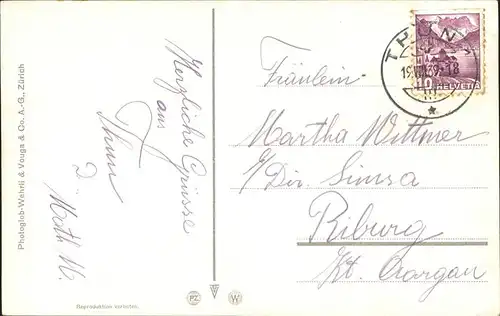 Photoglob-Wehrli & Vouga & Co. A.-G., Zürich
Herzliche Grüsse
aus
Thun
D. Moth M.
Reproduktion verboten.
PZ
W
THUN
19.VII.39-18
10 HELVETIA
Fräulein
Martha Wittmer
c/Dir. Sunsa
Riburg
Kt. Aargau